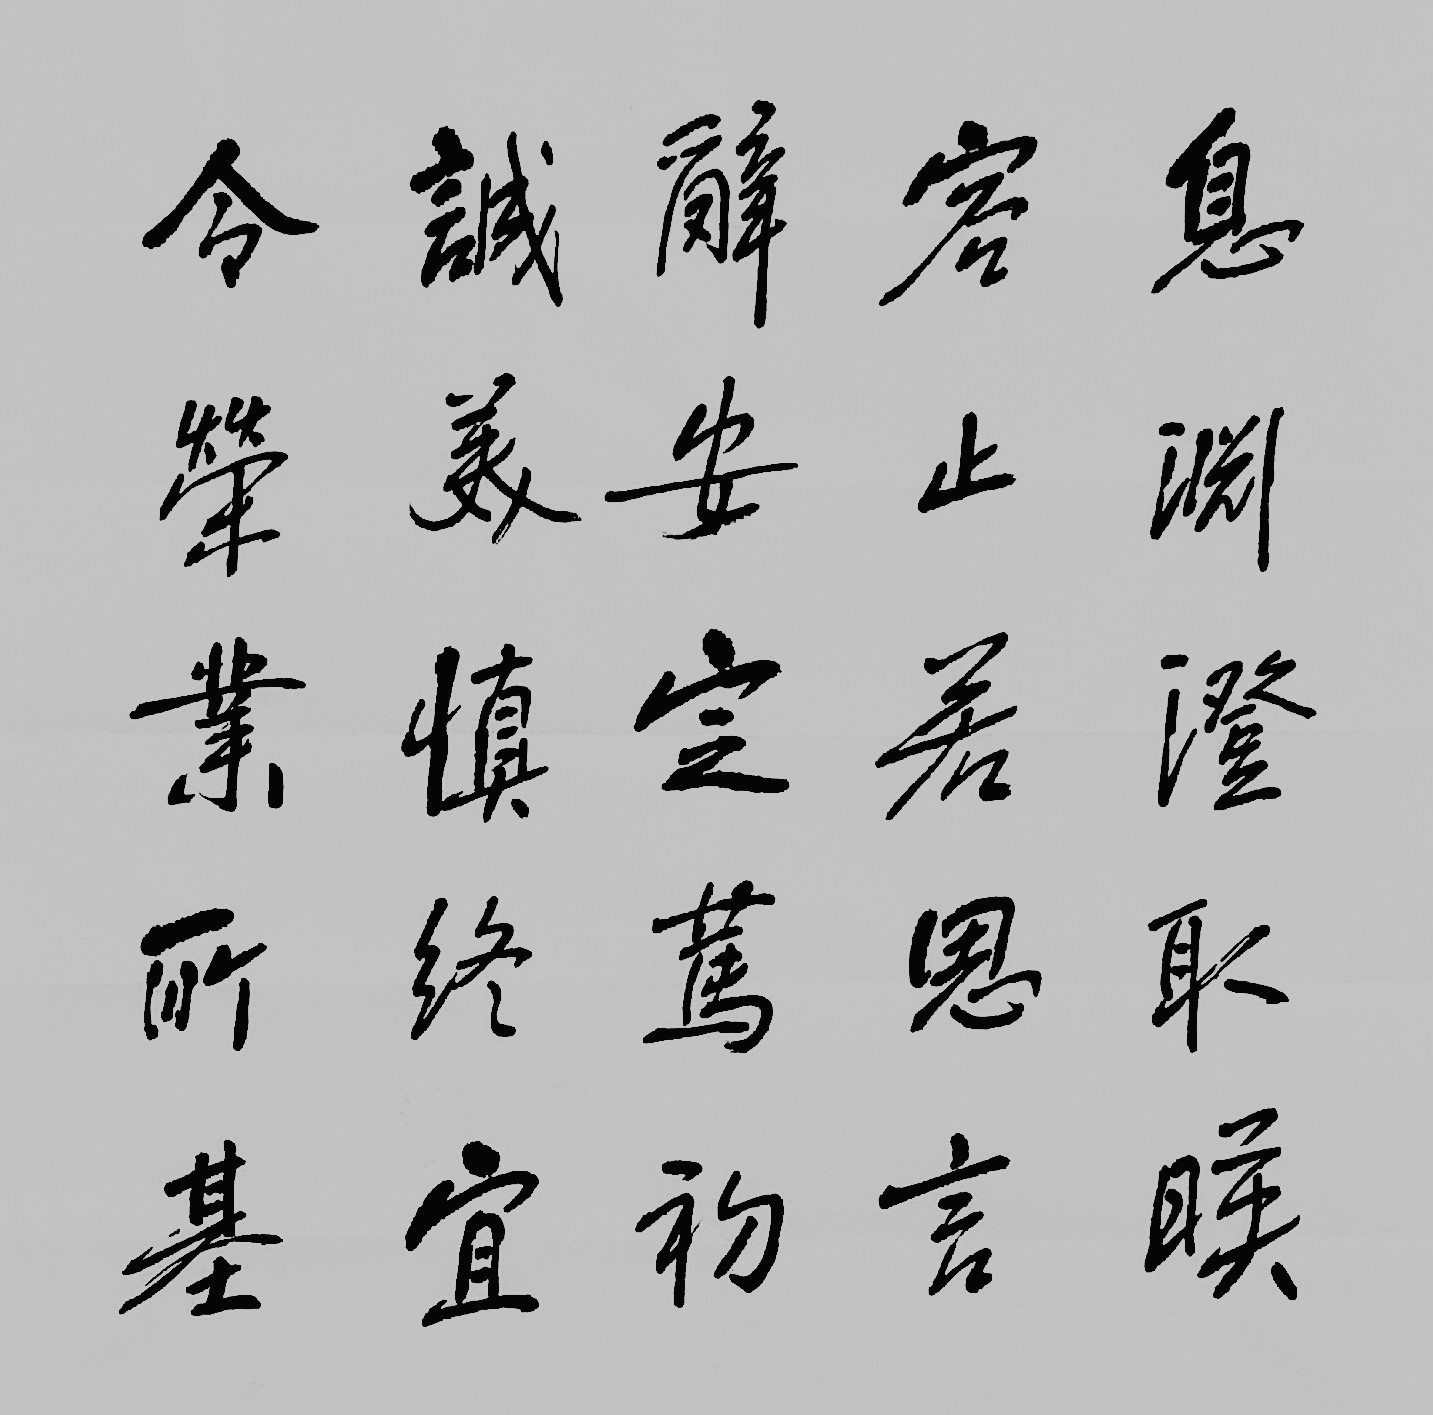 息淵澄取暎
容止若思言
辭安定篤初
誠美慎終宜
令榮業所基